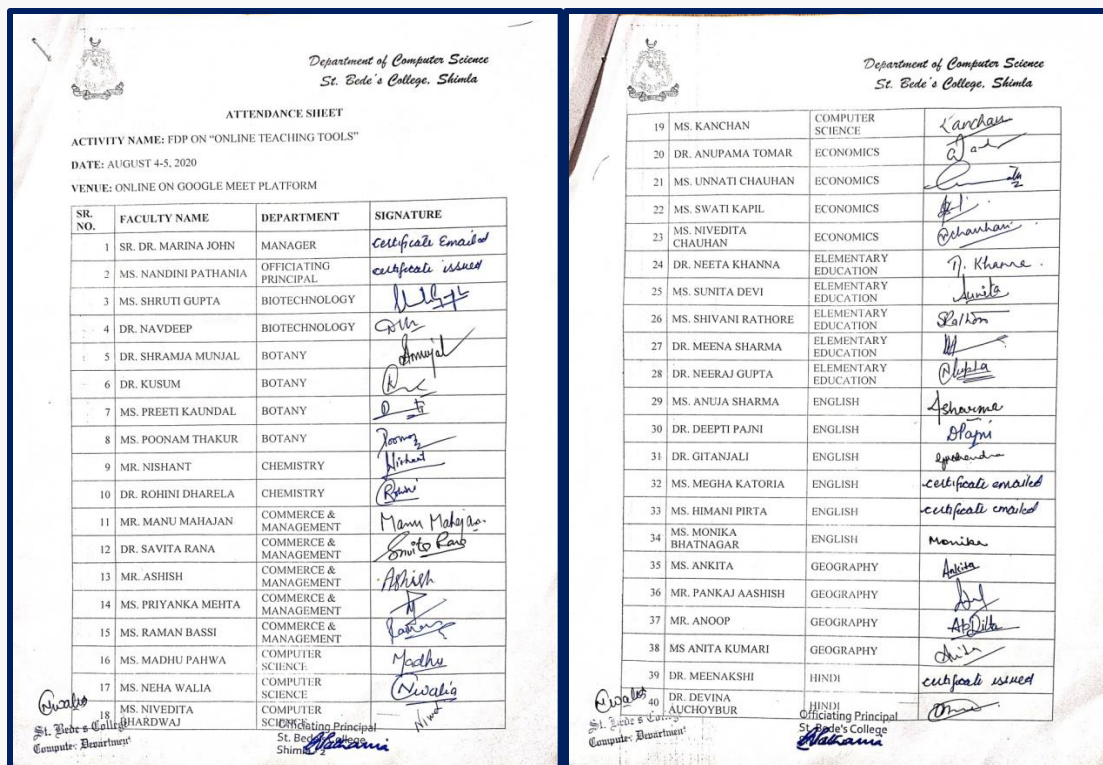 Department of Computer Science
St. Bede's College, Shimla
ATTENDANCE SHEET
ACTIVITY NAME: FDP ON "ONLINE TEACHING TOOLS"
DATE: AUGUST 4-5, 2020
VENUE: ONLINE ON GOOGLE MEET PLATFORM
SR. NO. FACULTY NAME DEPARTMENT SIGNATURE
1 SR. DR. MARINA JOHN MANAGER certificate Emailed
2 MS. NANDINI PATHANIA OFFICIATING PRINCIPAL certificate issued
3 MS. SHRUTI GUPTA BIOTECHNOLOGY
4 DR. NAVDEEP BIOTECHNOLOGY
5 DR. SHRAMJA MUNJAL BOTANY
6 DR. KUSUM BOTANY
7 MS. PREETI KAUNDAL BOTANY
8 MS. POONAM THAKUR BOTANY
9 MR. NISHANT CHEMISTRY Nishant
10 DR. ROHINI DHARELA CHEMISTRY Rohini
11 MR. MANU MAHAJAN COMMERCE & MANAGEMENT Manu Mahajan
12 DR. SAVITA RANA COMMERCE & MANAGEMENT
13 MR. ASHISH COMMERCE & MANAGEMENT Ashish
14 MS. PRIYANKA MEHTA COMMERCE & MANAGEMENT
15 MS. RAMAN BASSI COMMERCE & MANAGEMENT
16 MS. MADHU PAHWA COMPUTER SCIENCE Madhu
17 MS. NEHA WALIA COMPUTER SCIENCE Nwalia
18 MS. NIVEDITA BHARDWAJ COMPUTER SCIENCE
Nwalia
St. Bede's College
Computer Department
Officiating Principal
St. Bede's College
Shimla 2
Department of Computer Science
St. Bede's College, Shimla
19 MS. KANCHAN COMPUTER SCIENCE Kanchan
20 DR. ANUPAMA TOMAR ECONOMICS
21 MS. UNNATI CHAUHAN ECONOMICS
22 MS. SWATI KAPIL ECONOMICS
23 MS. NIVEDITA CHAUHAN ECONOMICS Nchauhan
24 DR. NEETA KHANNA ELEMENTARY EDUCATION N. Khanna.
25 MS. SUNITA DEVI ELEMENTARY EDUCATION Sunita
26 MS. SHIVANI RATHORE ELEMENTARY EDUCATION
27 DR. MEENA SHARMA ELEMENTARY EDUCATION
28 DR. NEERAJ GUPTA ELEMENTARY EDUCATION NGupta
29 MS. ANUJA SHARMA ENGLISH Asharma
30 DR. DEEPTI PAJNI ENGLISH DPajni
31 DR. GITANJALI ENGLISH
32 MS. MEGHA KATORIA ENGLISH certificate emailed
33 MS. HIMANI PIRTA ENGLISH certificate emailed
34 MS. MONIKA BHATNAGAR ENGLISH Monika
35 MS. ANKITA GEOGRAPHY Ankita
36 MR. PANKAJ AASHISH GEOGRAPHY
37 MR. ANOOP GEOGRAPHY
38 MS ANITA KUMARI GEOGRAPHY Anita
39 DR. MEENAKSHI HINDI certificate issued
40 DR. DEVINA AUCHOYBUR HINDI
Nwalia
St. Bede's College
Computer Department
Officiating Principal
St. Bede's College